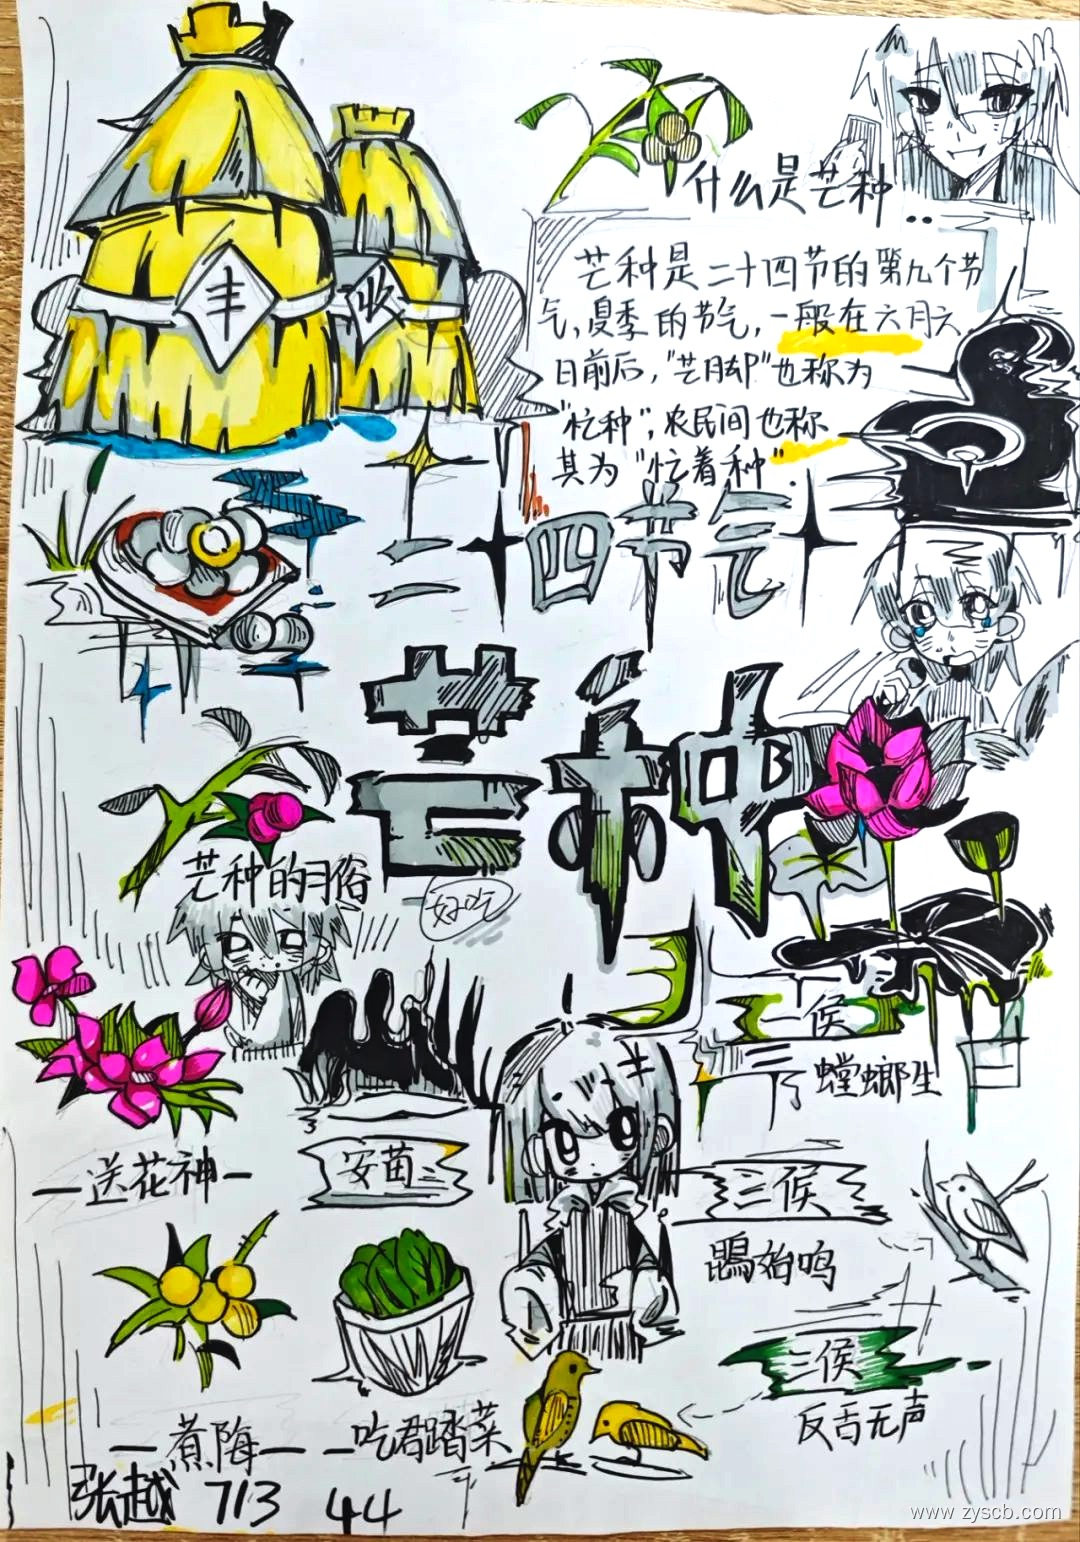 丰
收
什么是芒种
芒种是二十四节的第九个节
气,夏季的节气,一般在六月六
日前后,"芒种"也称为
"忙种",农民间也称
其为"忙着种".
二十四节气
芒种
芒种的习俗
好吃
一候
螳螂生
送花神
安苗
二候
鵙始鸣
三候
反舌无声
煮梅
吃君踏菜
张越 713 44
www.zyscb.com